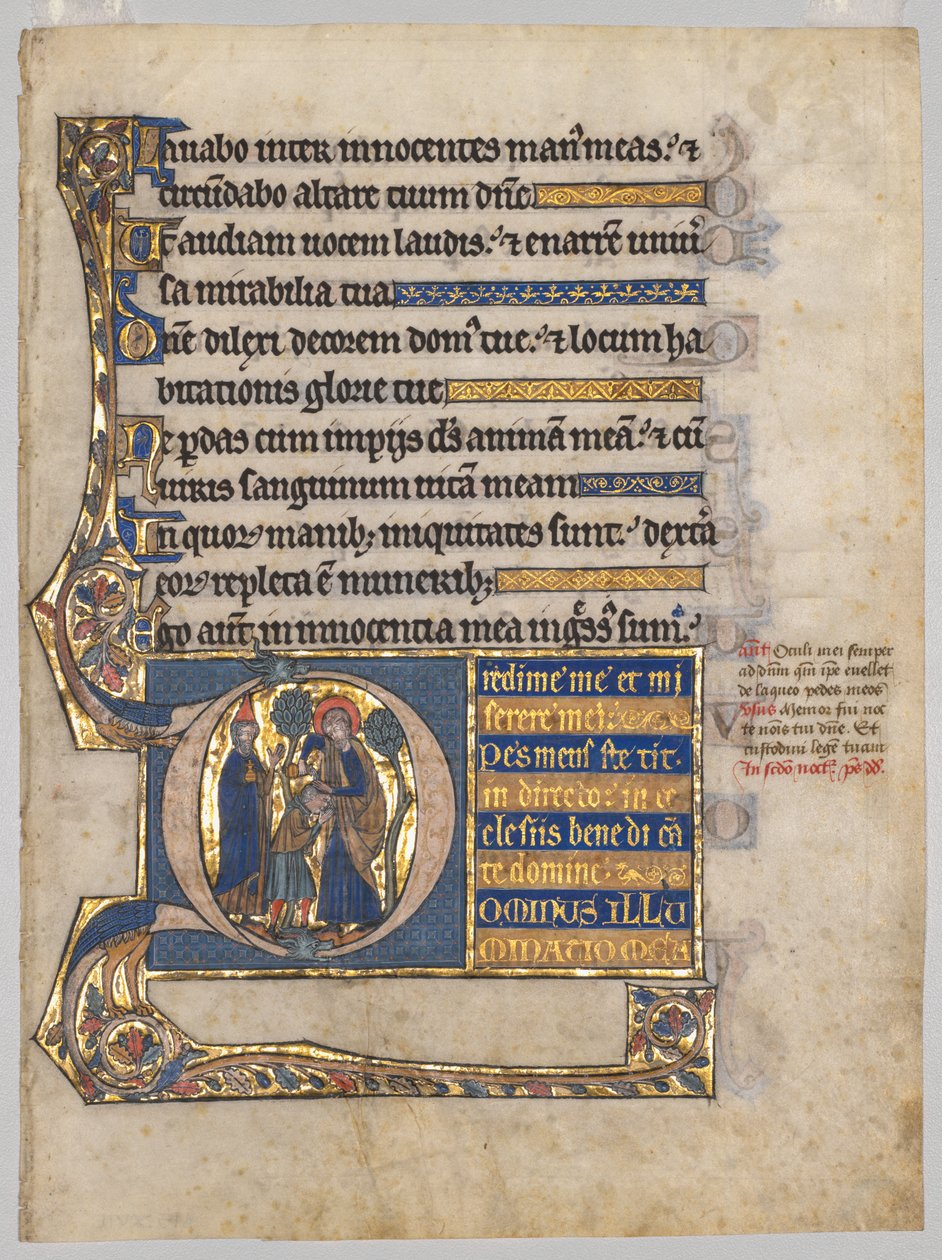 Lauabo inter innocentes man᾽ meas. ⁊
circūdabo altare tuum dn̄e
Ut audiam uocem laudis. ⁊ enarrē uniū᾽
sa mirabilia tua
Dn̄e dilexi decorem dom᾽ tue. ⁊ locum ha
bitationis glorie tue
Ne ꝑdas cum impijs ds̄ animā meā. ⁊ cū
uiris sanguinum uitā meam
In quoꝝ manibꝫ iniquitates sunt. dext᾽a
eoꝝ repleta ē muneribꝫ
Ego aūt in innocentia mea ingͤss᾽ sum.
redime me et mi
serere mei.
Pes meus ste tit
in directo. in ec
clesiis bene di cā
te domine.
DOMINUS ILLU
MINATIO MEA
ant̄ Oculi mei semper
ad dn̄m qm̄ ipe euellet
de laqueo pedes meos
vsus Memor fui noc
te nōis tui dn̄e. Et
custodiui legē tuam
In scdo noct᾽. ps̄ dd̄.